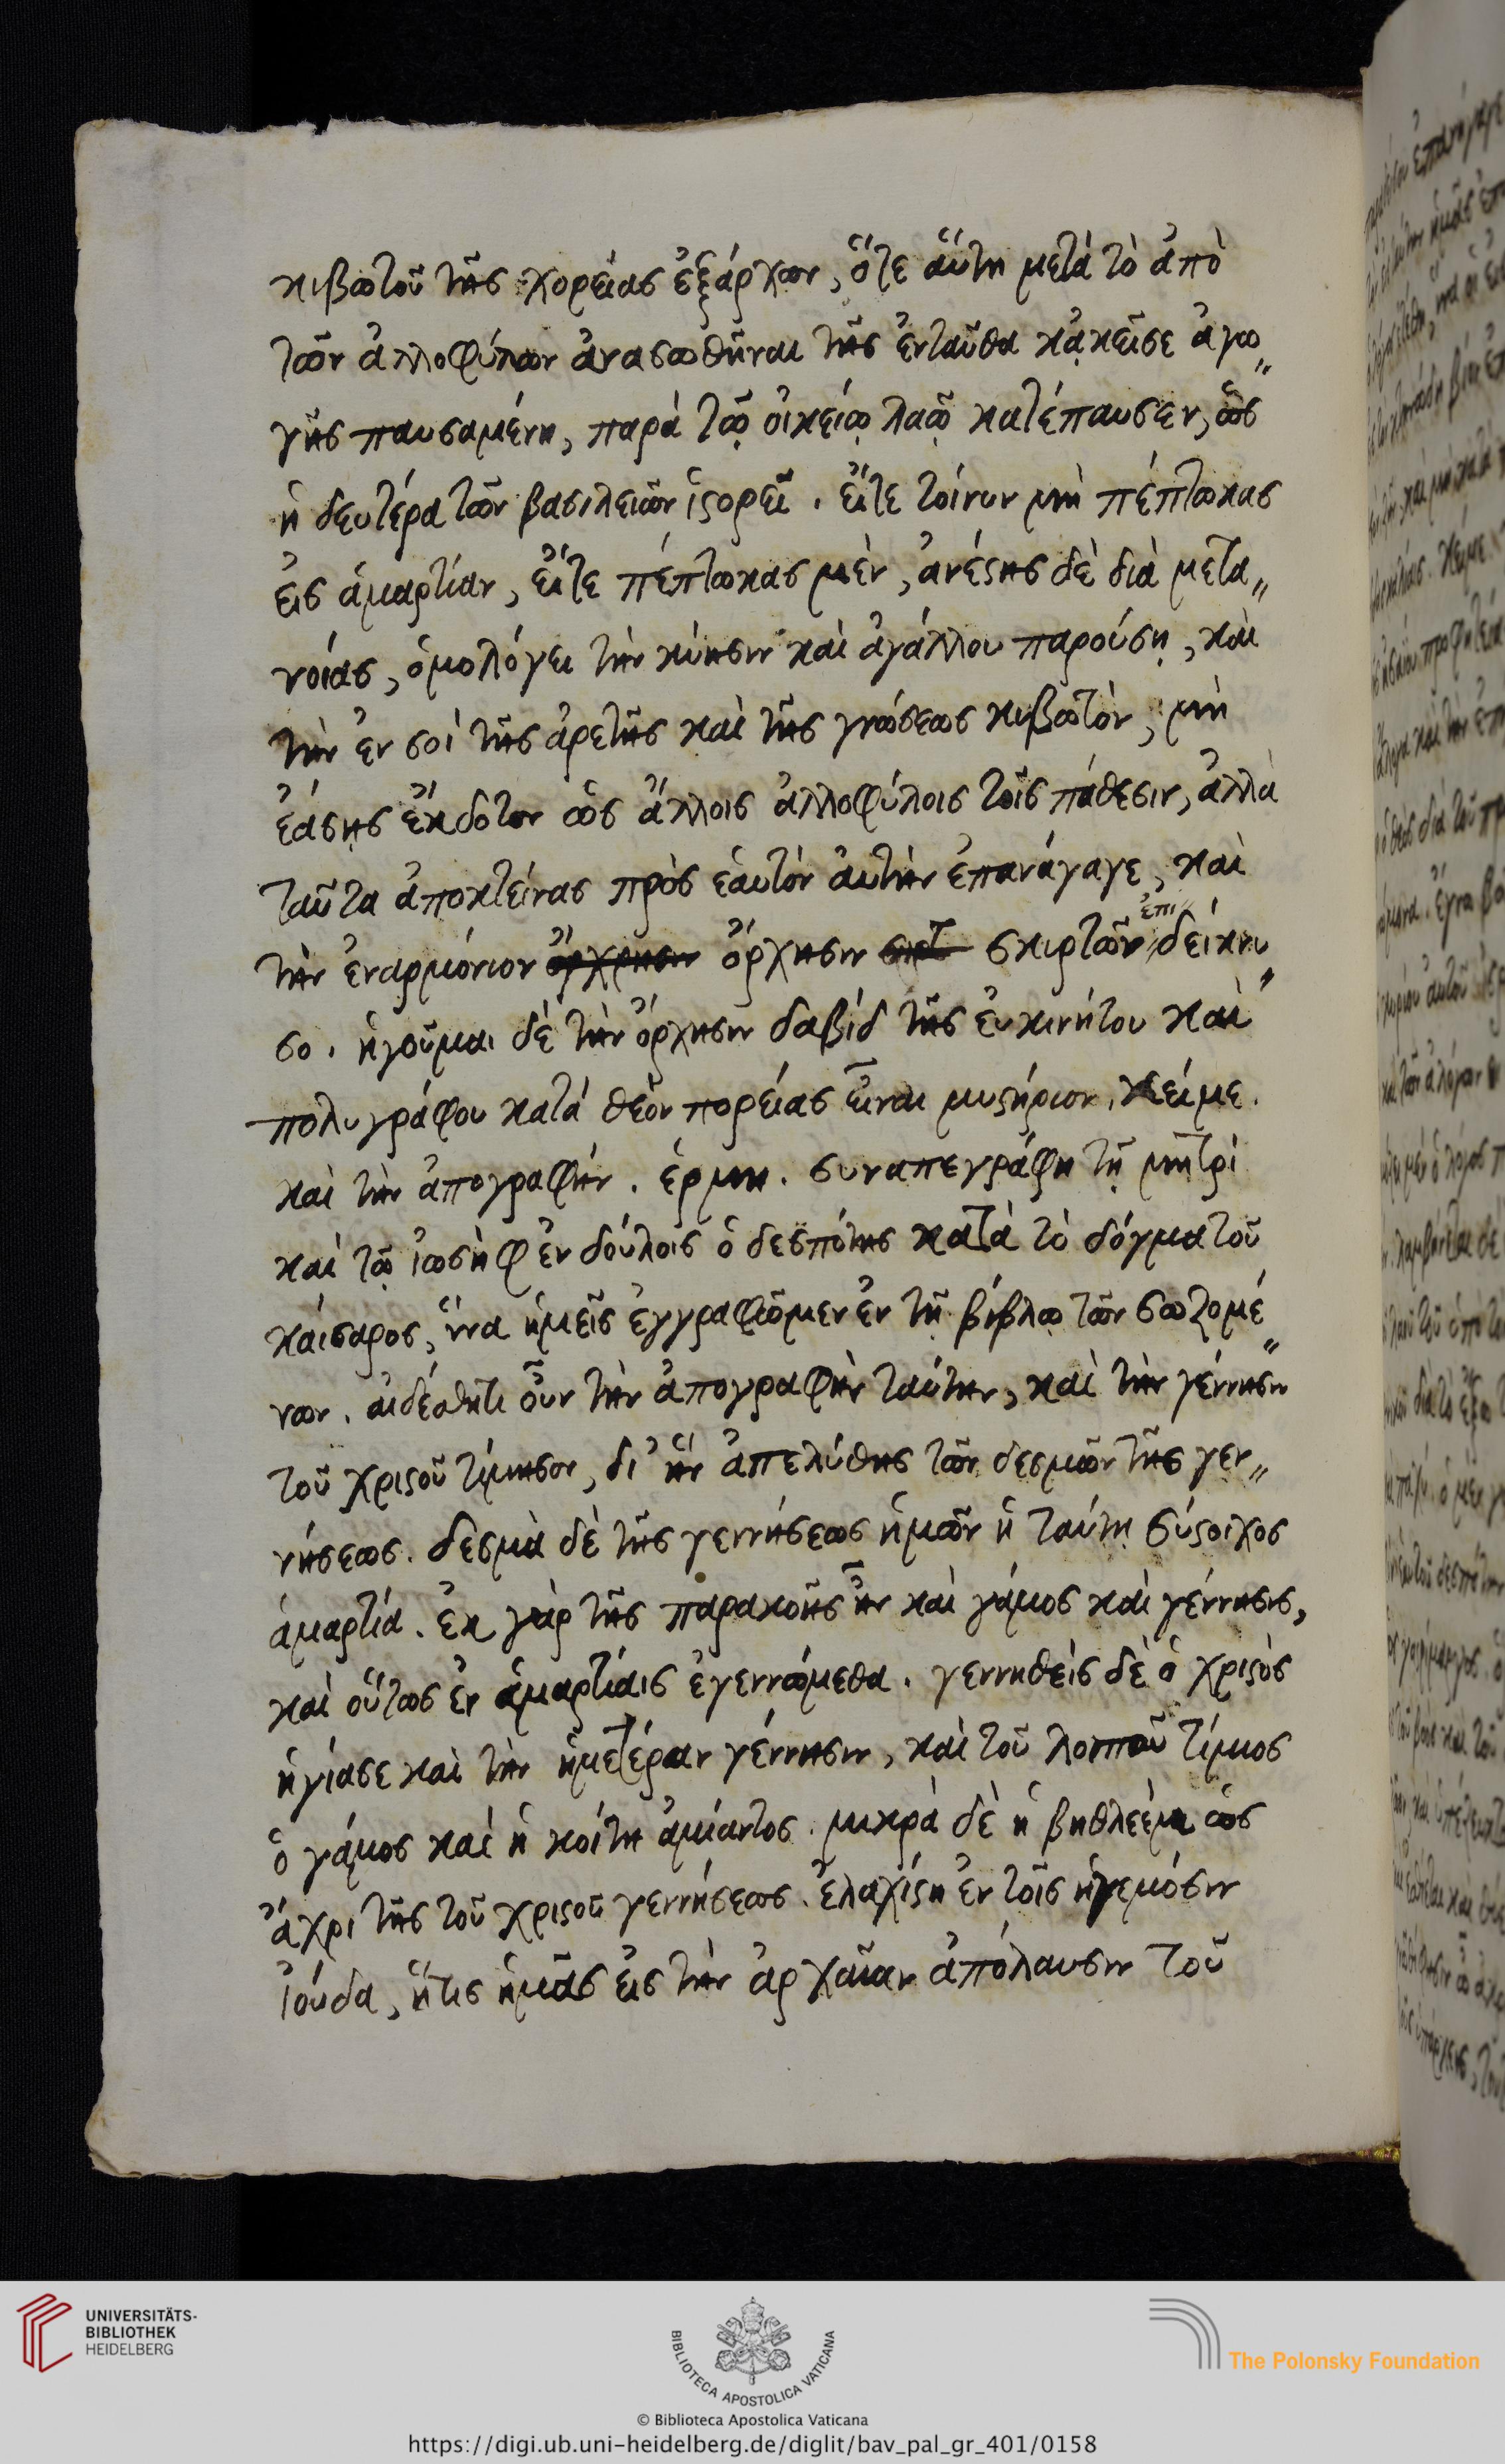 κιβωτοῦ τῆς χορείας ἐξάρχων, ὅτε αὕτη μετὰ τὸ ἀπὸ
τῶν ἀλλοφύλων ἀνασωθῆναι τῆς ἐνταῦθα κᾀκεῖσε ἀγω„
γῆς παυσαμένη, παρὰ τῷ οἰκείῳ λαῷ κατέπαυσεν, ὡς
ἡ δευτέρα τῶν βασιλειῶν ἱϛορεῖ. εἴτε τοίνυν μὴ πέπτωκας
εἰς ἁμαρτίαν, εἴτε πέπτωκας μὲν, ἀνέϛης δὲ διὰ μετα„
νοίας, ὁμολόγει τὴν κύησιν καὶ ἀγάλλου παρούσῃ, καὶ
τὴν ἐν σοὶ τῆς ἀρετῆς καὶ τῆς γνώσεως κιβωτὸν, μὴ
ἐάσῃς ἔκδοτον ὡς ἄλλοις ἀλλοφύλοις τοῖς πάθεσιν, ἀλλὰ
ταῦτα ἀποκτείνας πρὸς ἑαυτὸν αὐτὴν ἐπανάγαγε, καὶ
τὴν ἐναρμόνιον ὄρχησιν σκιρτῶν ἐπιδείκνυ„
σο. ἡγοῦμαι δὲ τὴν ὄρχησιν δαβίδ τῆς εὐκινήτου καὶ
πολυγράφου κατὰ θεὸν πορείας εἶναι μυϛήριον. κείμε.
καὶ τὴν ἀπογραφήν. ἑρμη. συναπεγράφη τῇ μητρὶ
καὶ τῷ ἰωσὴφ ἐν δούλοις ὁ δεσπότης κατὰ τὸ δόγμα τοῦ
καίσαρος, ἵνα ἡμεῖς ἐγγραφῶμεν ἐν τῇ βίβλῳ τῶν σωζομέ„
νων. αἰδέσθητι οὖν τὴν ἀπογραφὴν ταύτην, καὶ τὴν γέννησιν
τοῦ χριϛοῦ τίμησον, δι’ ἣν ἀπελύθης τῶν δεσμῶν τῆς γεν„
νήσεως. δεσμὰ δὲ τῆς γεννήσεως ἡμῶν ἡ ταύτῃ σύϛοιχος
ἁμαρτία. ἐκ γὰρ τῆς παρακοῆς ἦν καὶ γάμος καὶ γέννησις,
καὶ οὕτως ἐν ἁμαρτίαις ἐγεννώμεθα. γεννηθεὶς δὲ ὁ χριϛὸς
ἡγίασε καὶ τὴν ἡμετέραν γέννησιν, καὶ τοῦ λοιποῦ τίμιος
ὁ γάμος καὶ ἡ κοίτη ἀμίαντος. μικρὰ δὲ ἡ βηθλεὲμ ὡς
ἄχρι τῆς τοῦ χριϛοῦ γεννήσεως. ἐλαχίϛη ἐν τοῖς ἡγεμόσιν
ἰούδα, ἥτις ἡμᾶς εἰς τὴν ἀρχαίαν ἀπόλαυσιν τοῦ
UNIVERSITÄTS-
BIBLIOTHEK
HEIDELBERG
BIBLIOTECA APOSTOLICA VATICANA
The Polonsky Foundation
© Biblioteca Apostolica Vaticana
https://digi.ub.uni-heidelberg.de/diglit/bav_pal_gr_401/0158